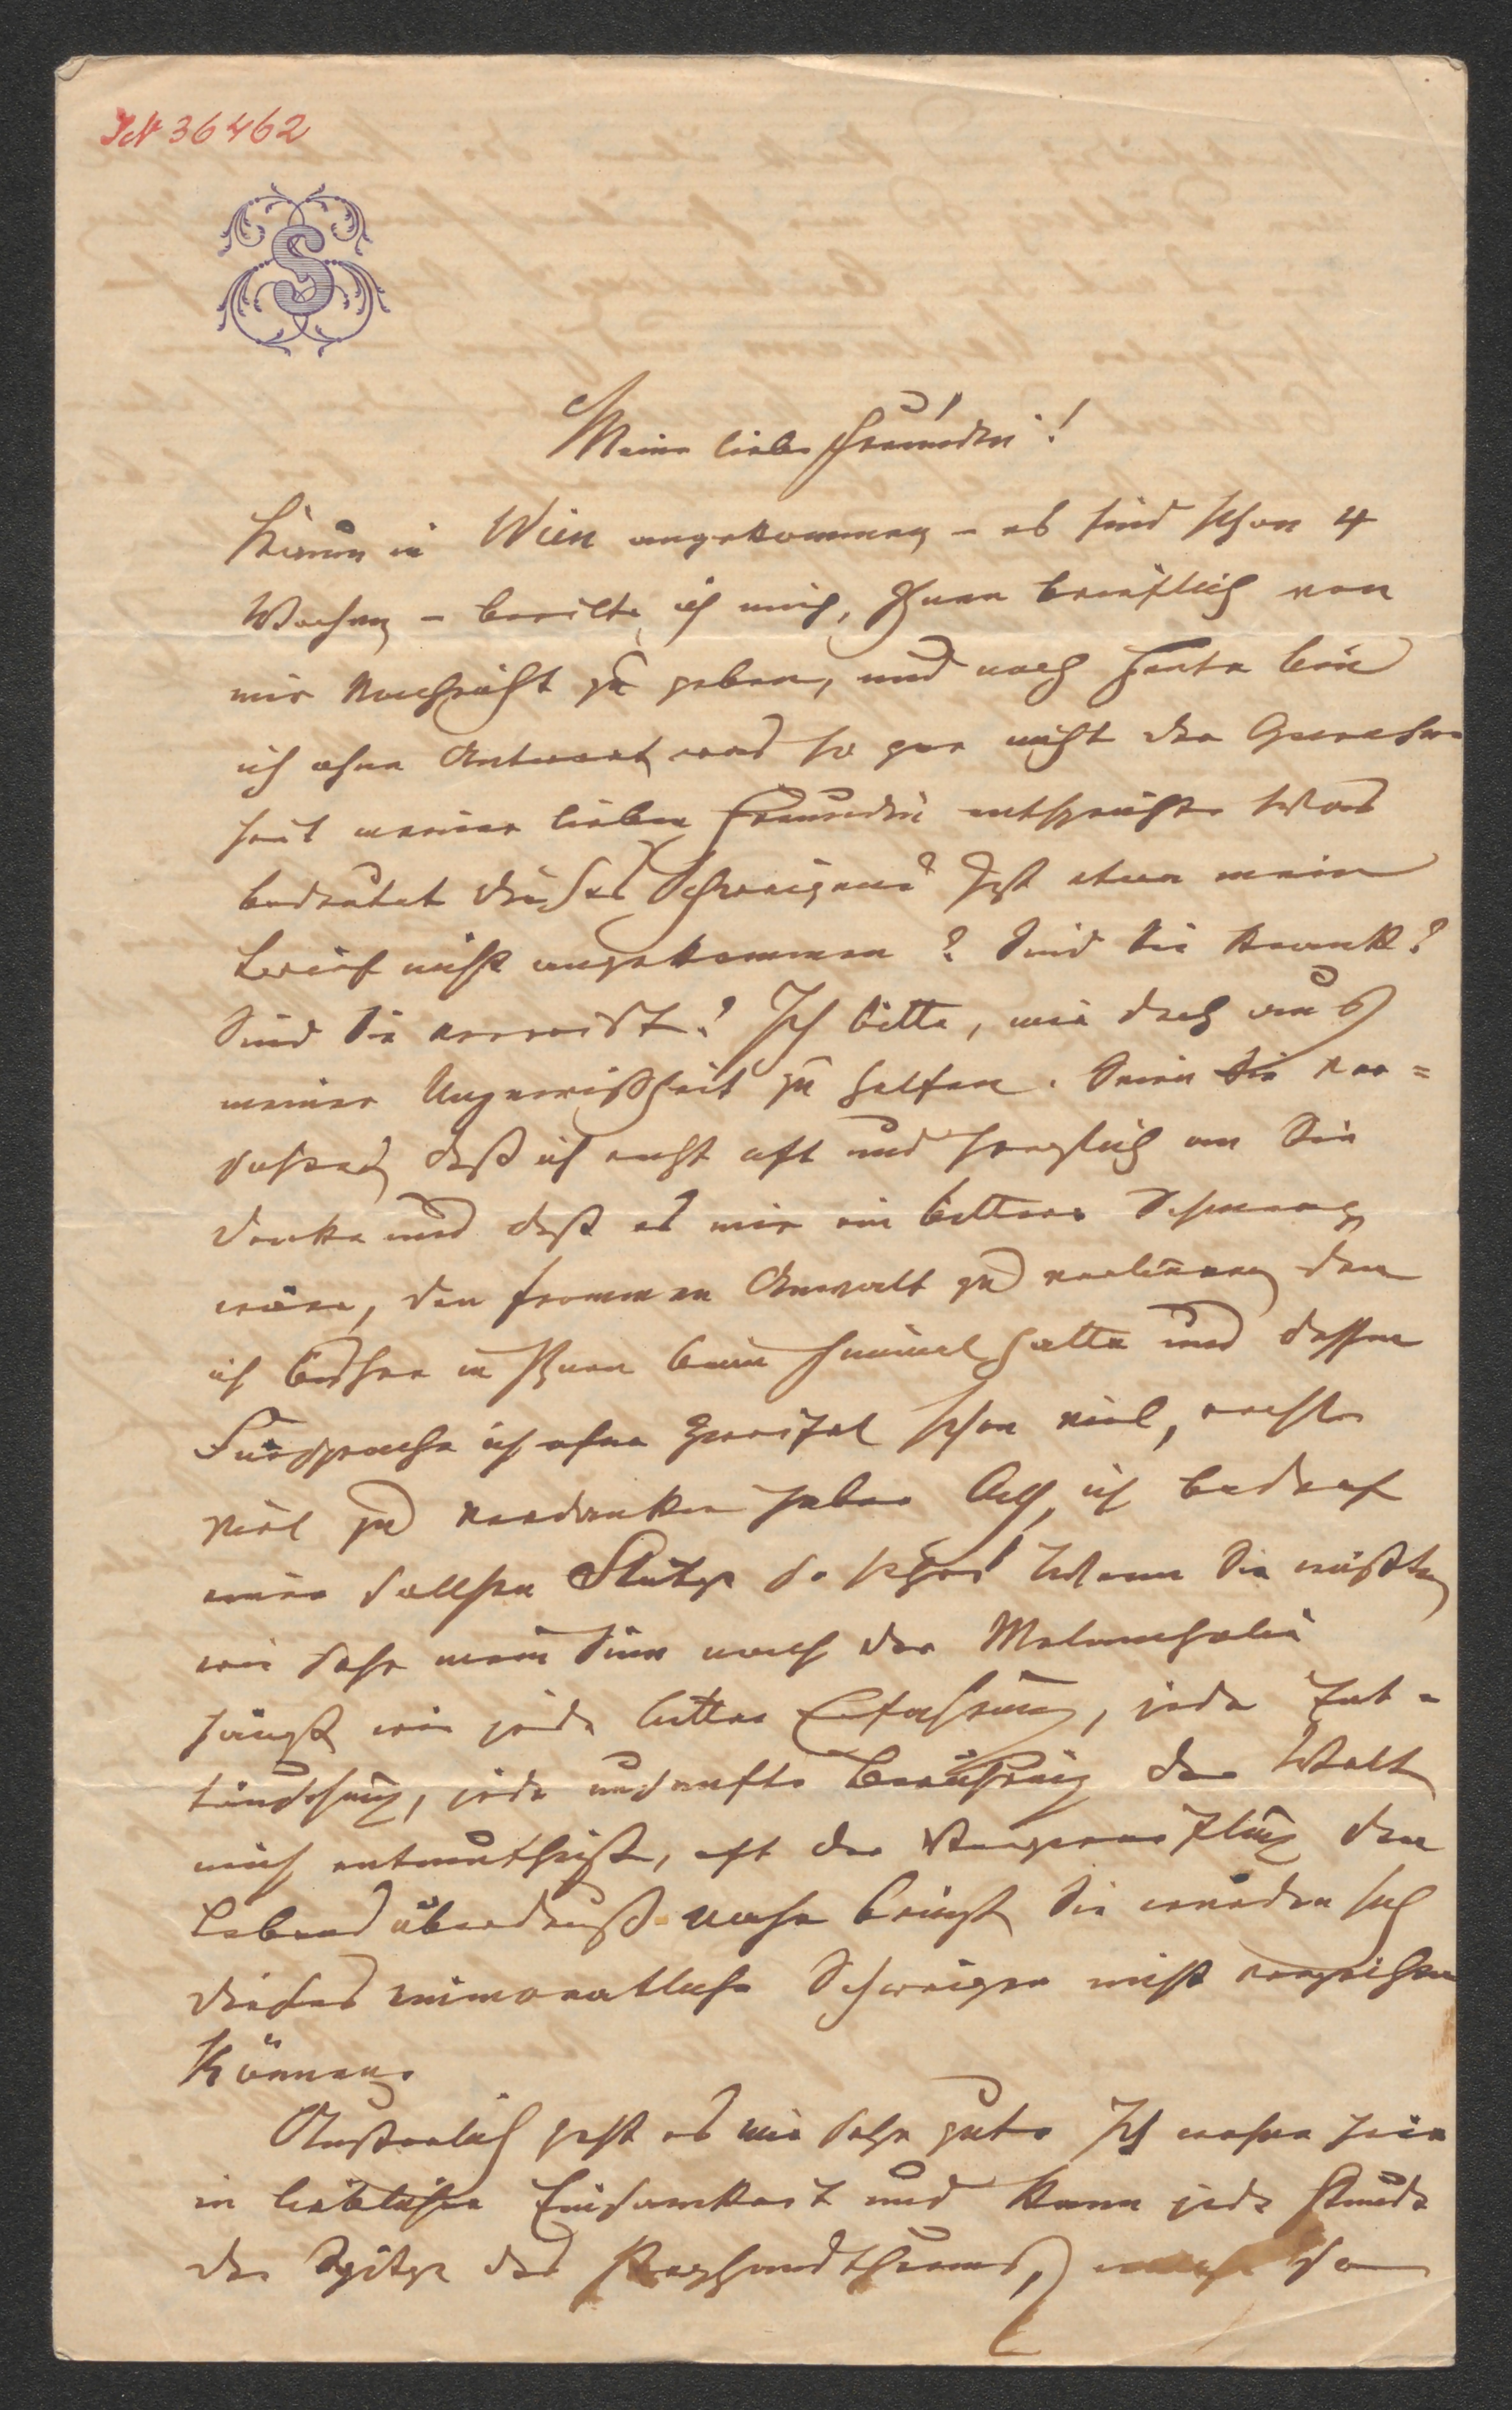 IN 36462
S
Meine liebe Freundin!
Kaum in Wien angekommen – es sind schon 4
Wochen – beeilte ich mich, Ihnen brieflich von
mir Nachricht zu geben, und noch heute bin
ich ohne Antwort was so gar nicht der
heit meiner lieben Freundin entspricht. Was
bedeutet dieses Schweigen? Ist etwa mein
Brief nicht angekommen? Sind Sie krank?
Sind Sie verreist? Ich bitte, mir doch aus
meiner Ungewißheit zu helfen. Seien Sie ver=
sichert, daß ich recht oft und herzlich an Sie
denke und daß es mir ein bitterer Schmerz
wäre, den frommen Anwalt zu verlieren, den
ich bisher in Ihnen beim Himmel hatte und dessen
Fürsprache ich ohne Zweifel schon viel, recht
viel zu verdanken habe. Ach, ich bedarf
einer solchen Stütze so sehr! Wenn Sie wüßten,
wie sehr mein Sinn nach der Melancholie
hängt, wie jede bittere Erfahrung, jede Ent-
täuschung, jede unsanfte Berührung der Welt
mich entmuthigt, oft der den
Lebensüberdruß nahe bringt, Sie würden sich
dieses einmonatliche Schweigen nicht verzeihen
können.
Äußerlich geht es mir sehr gut. Ich wohne hier
in lieblicher Einsamkeit und kann jede Stunde
der Spitze des